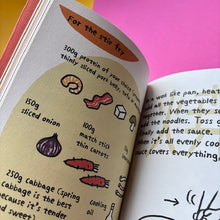 for the stir fry
300g protein of your choice
thinly sliced pork belly, tofu
150g
sliced onion
100g
match stick
thin carrots
250g cabbage (spring
cabbage is the best
because it's tender
and sweet)
cooking
oil
wok like pan, heat
all the vegetables
together. When
the noodles. Toss
ally add the sauce.
hen it's all evenly
uce covers everything